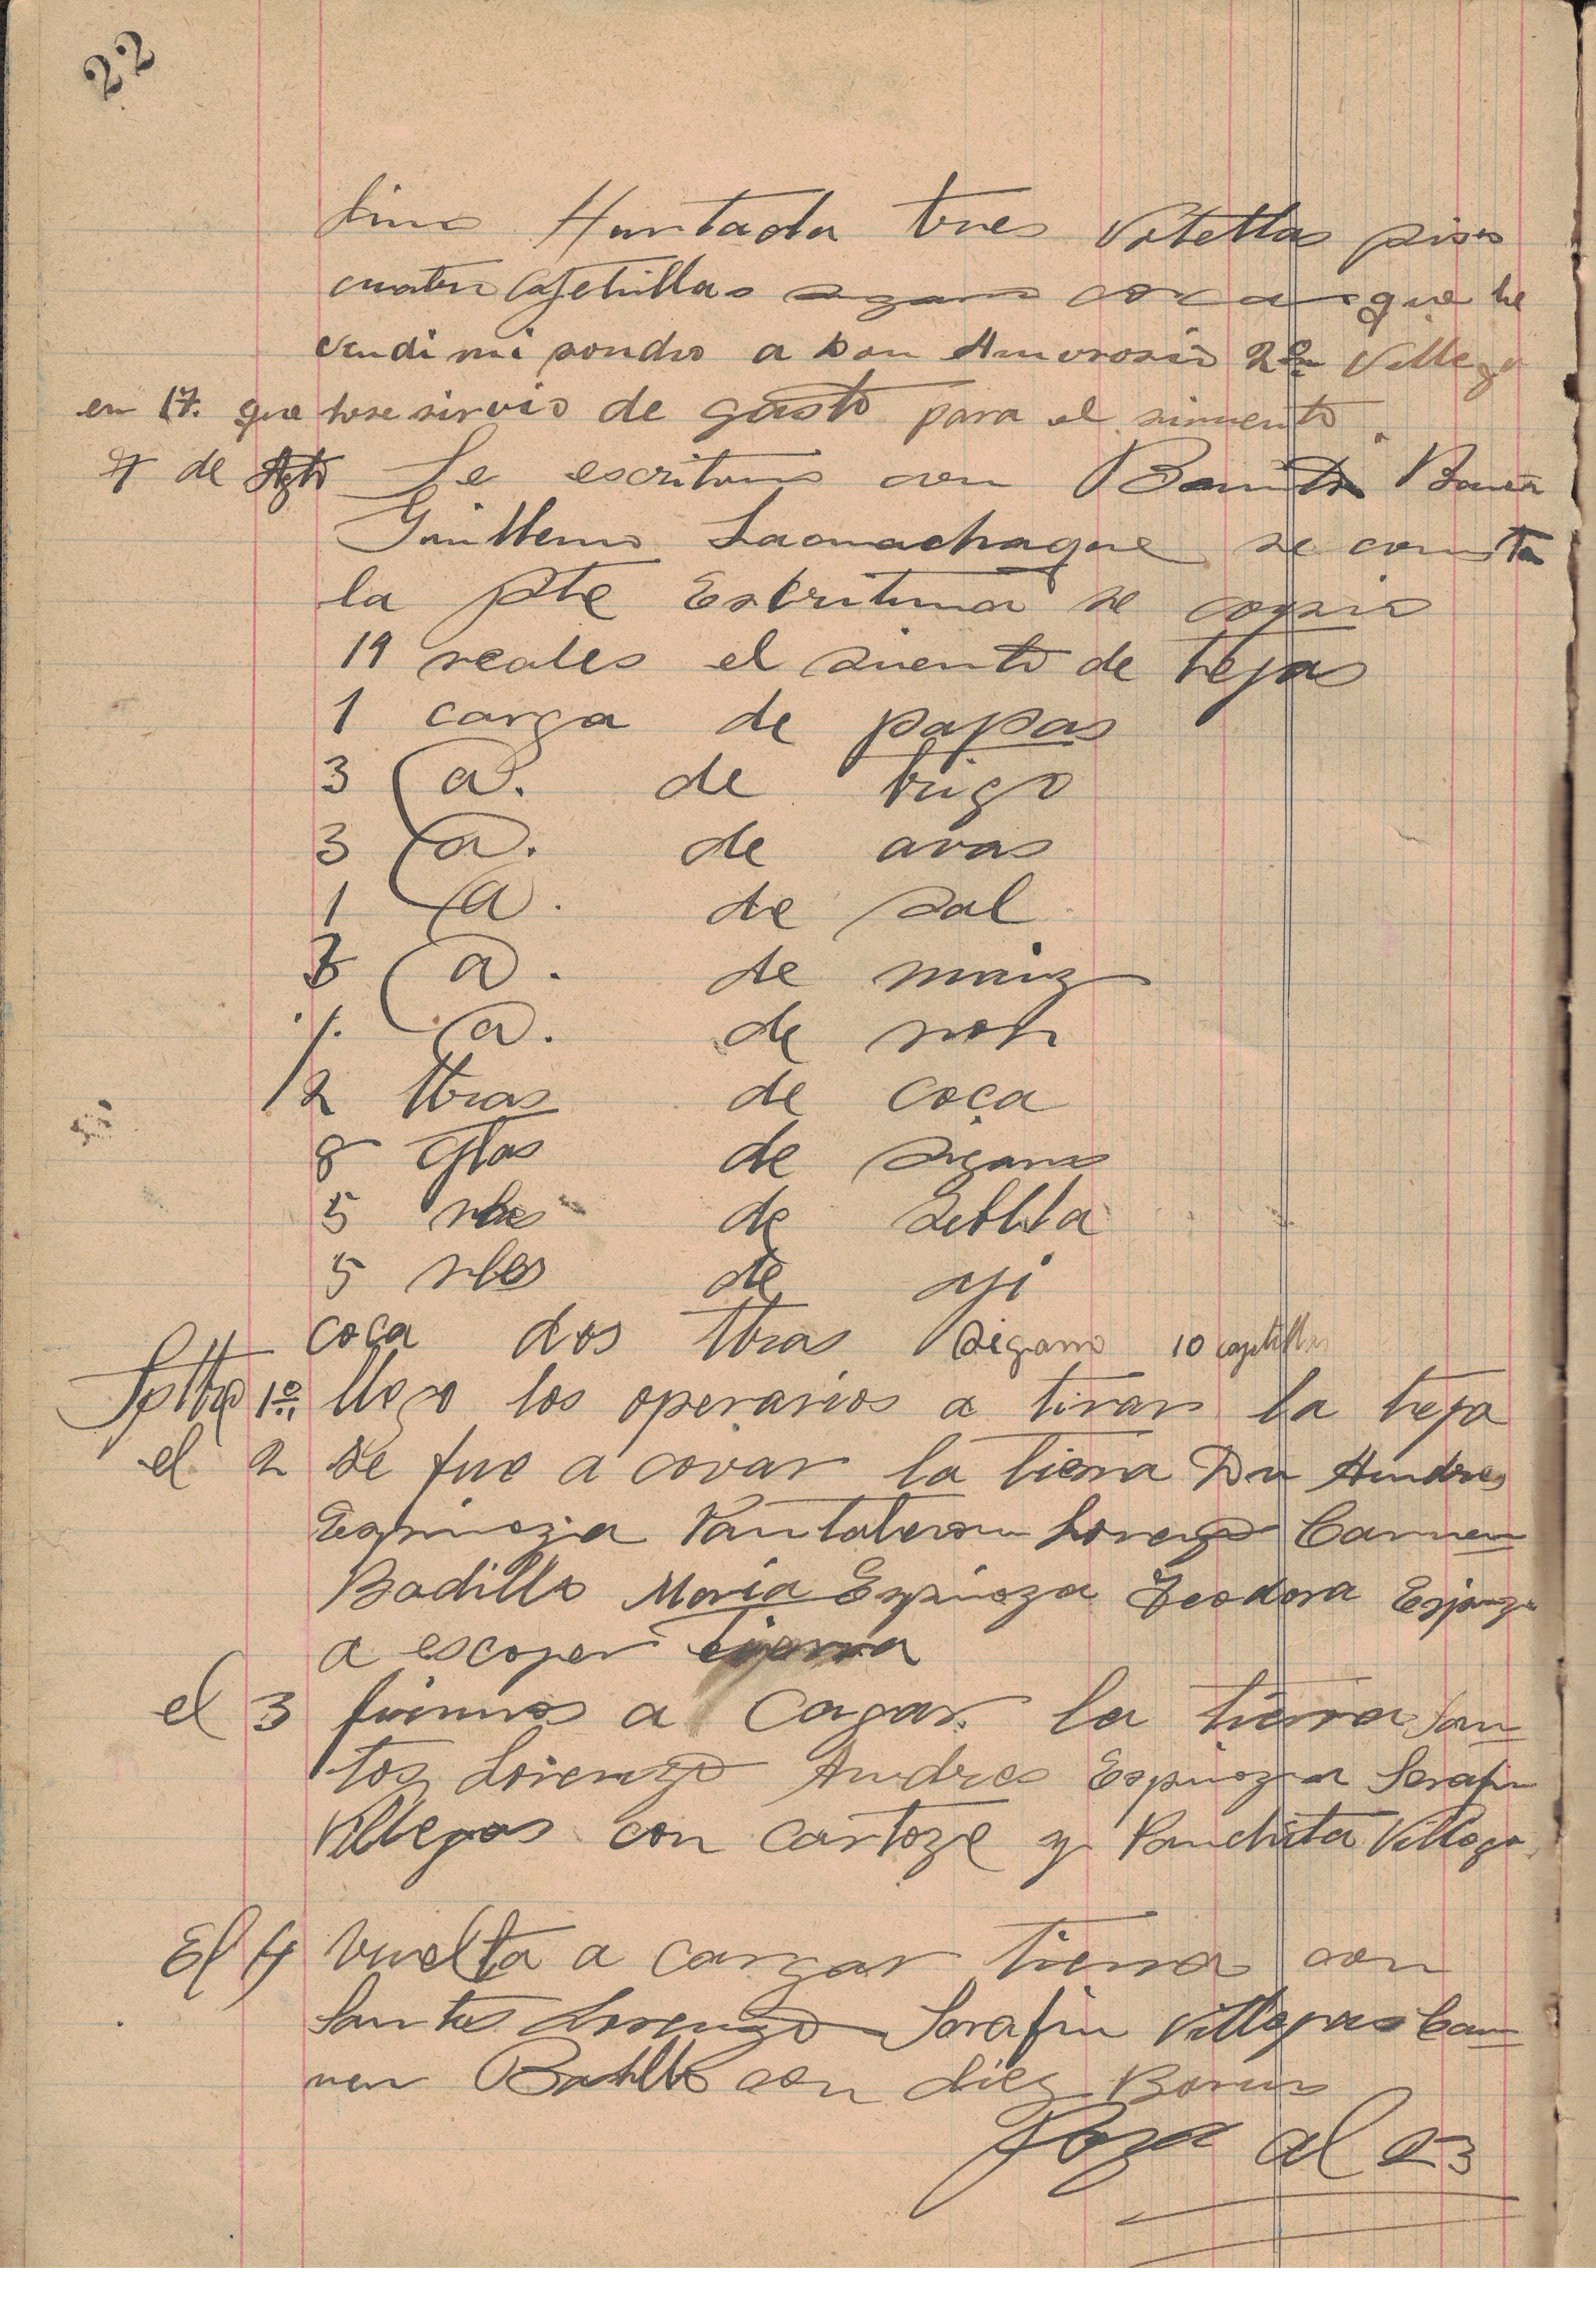 22
Hurtado tres Votellas
cuatro cajetillas que le
vendi mi a Don Amorosio 2do Villega
en 17. que sirvio de gasto para el
de Agto Se con
Guillermo se
la pte Escritura se copio
19 reales el siento de tejas
1 carga de papas
3 @. de trigo
3 @. de avas
1 @. de sal
@. de maiz
@. de
2 lbras de coca
8 de sigarro
5 de
5 rles de aji
coca dos lbras sigarro 10
Sptbre 1º llego los operarios a tirar la teja
el 2 se fue a covar la tierra Dn Andres
Espinoza Pantaleon Lorenzo Carmen
Badillo Maria Espinoza Teodora Espinoza
a escoger tierra
el 3 fuimos a cagar la tierra San
tos Lorenzo Andres Espinoza Serafin
Villegas con cartoze y Panchita Villega
El 4 vuelta a cargar tierra con
Santos Lorenzo Serafin Villegas Car
men Badillo con diez
Pasa al 23